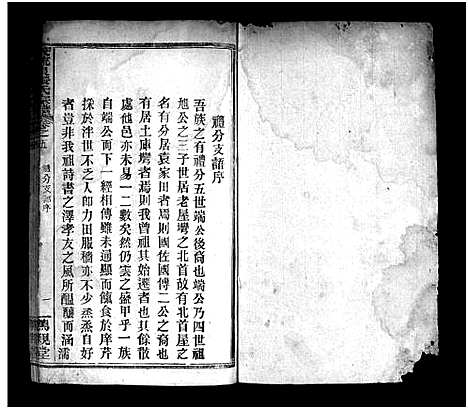 禮分支譜序
吾族之有禮分五世端公後裔也端公乃四世祖
旭公之三子世居老屋塆之北首故有北首屋之
名有分居袁家田者焉則國佐國博二公之裔也
有居土庫塆者焉則我曾祖其始遷者也其餘散
處他邑亦未易一二數矣然仍雲之盛甲乎一族
自端公而下一經相傳雖未過顯而餼食於庠芹
採於泮世不乏人卽力田服穡亦不少烝烝自好
者豈非我祖詩書之澤孝友之風所醞釀而涵濡
氏族譜卷之五
禮分支譜序
一
親堂